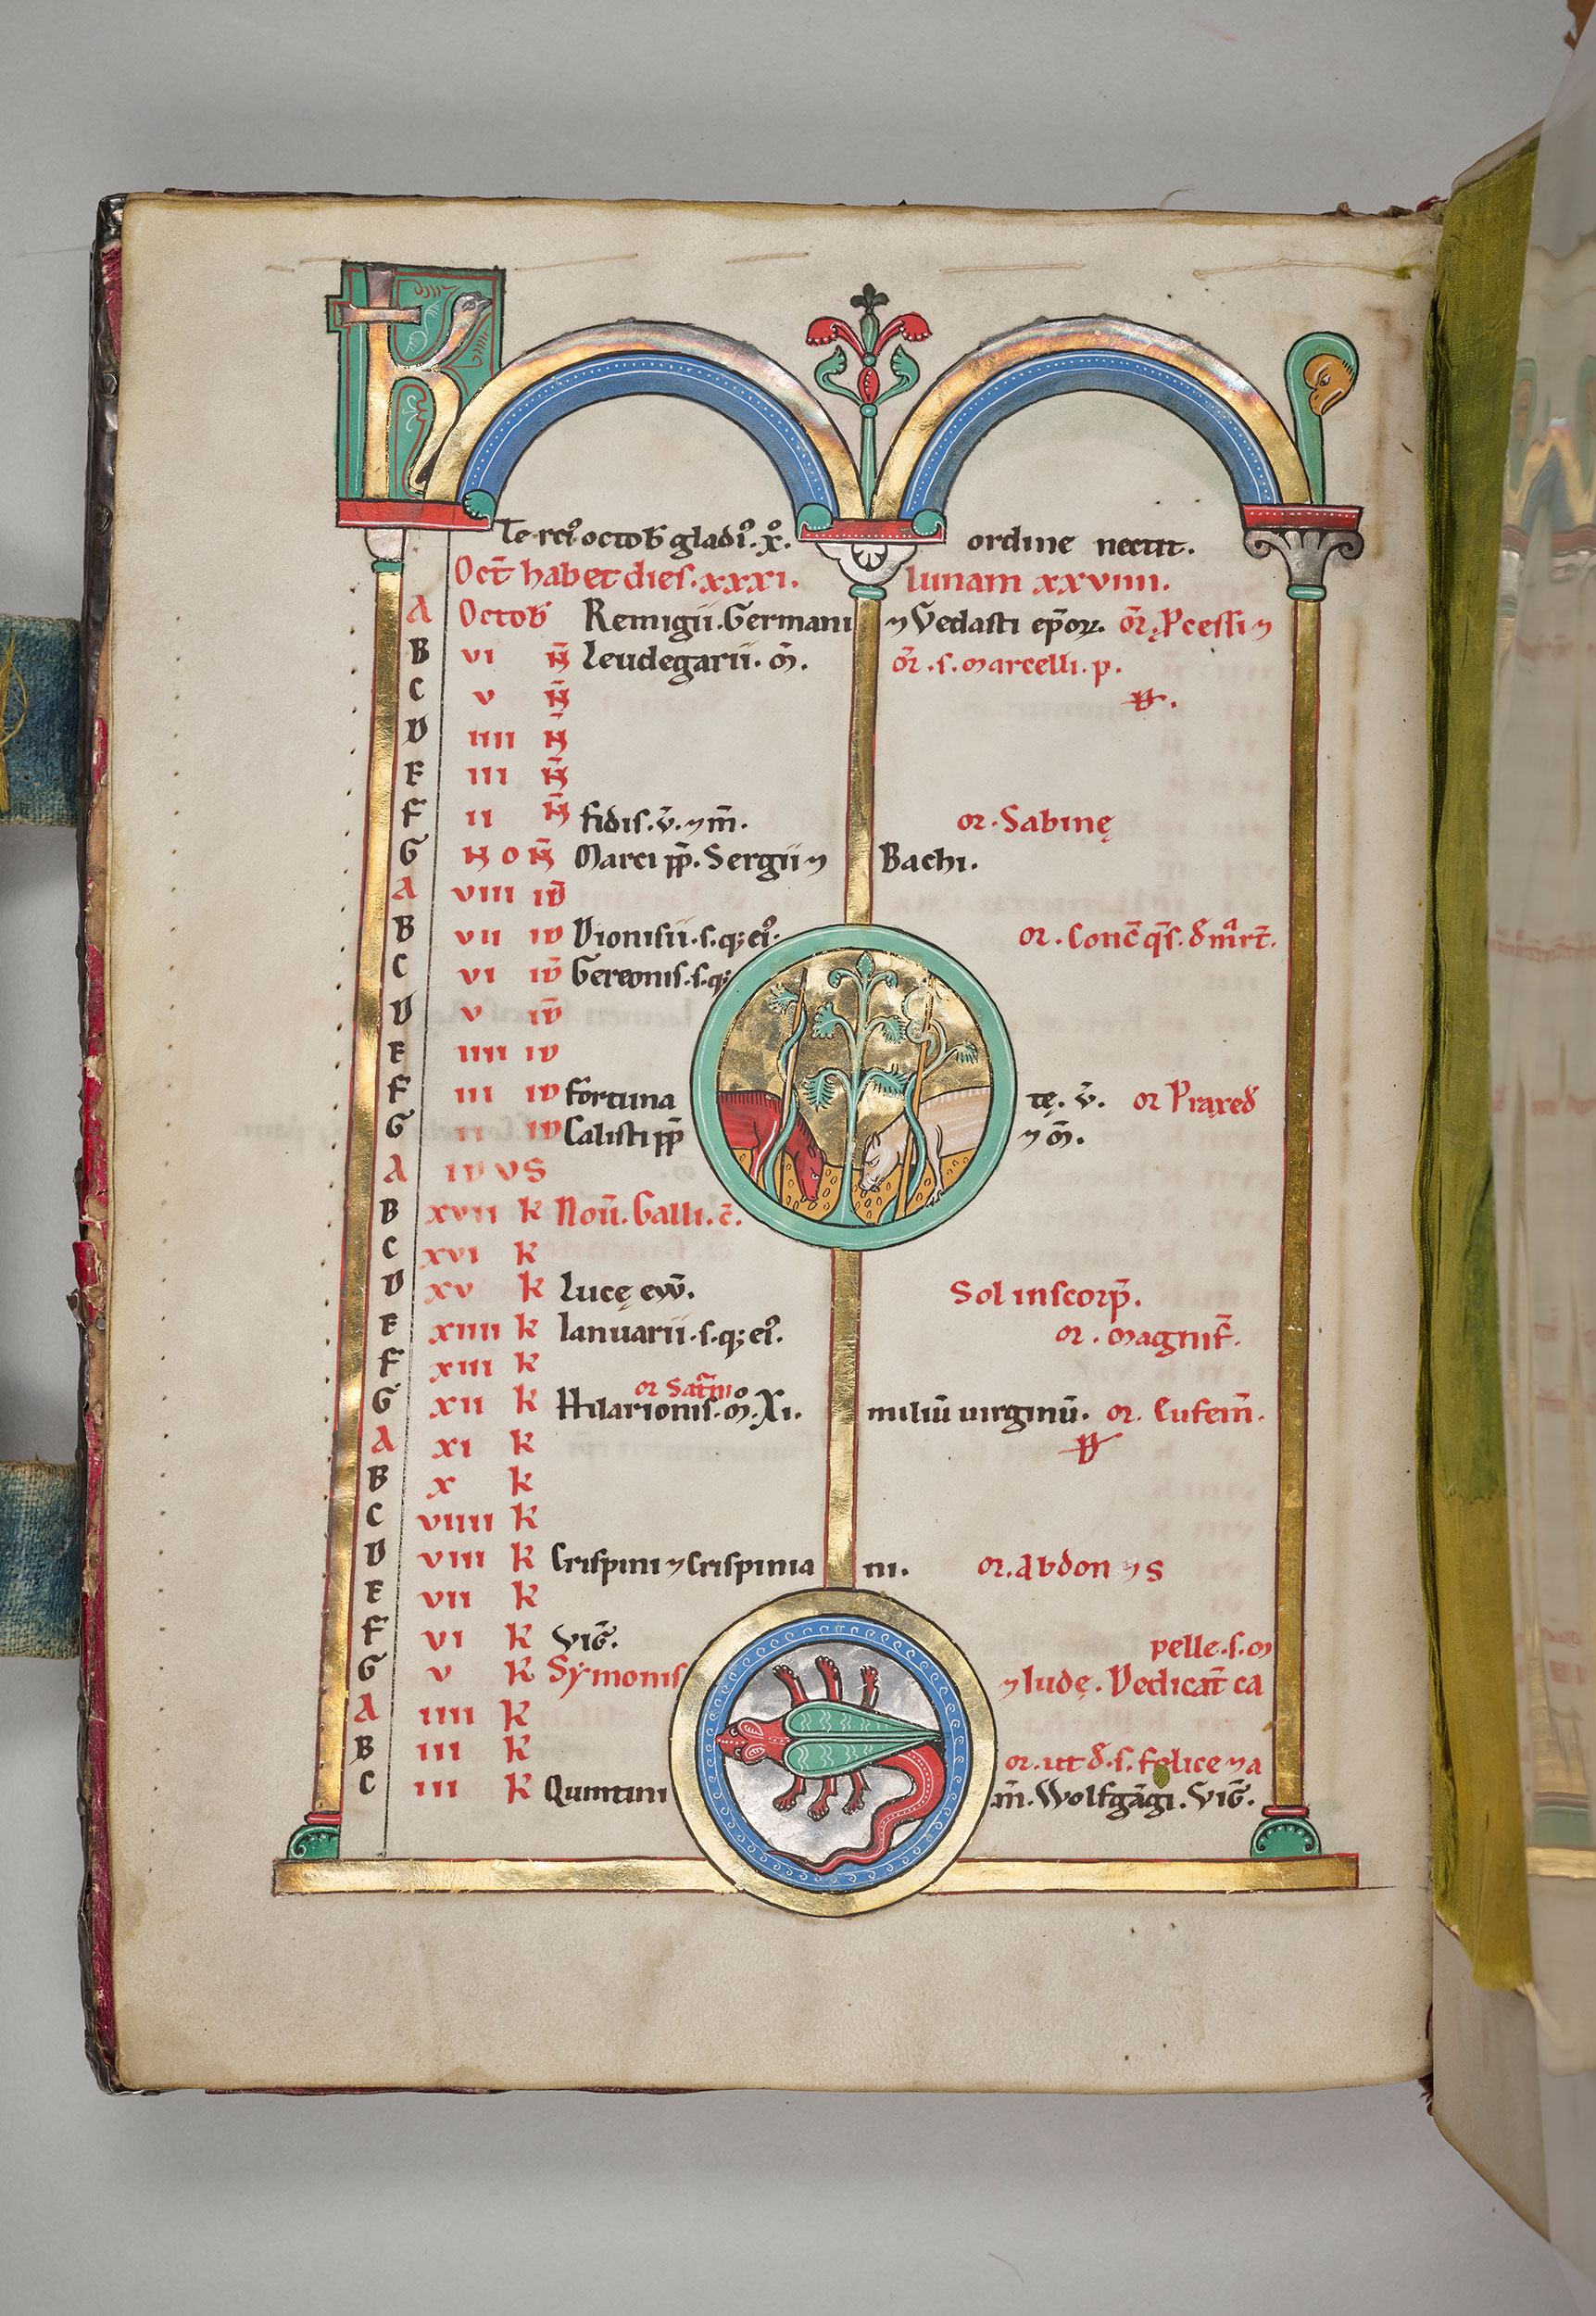 K
Te rci9 octob gladi9. x9. ordine nectit.
Oct̄ habet dies. xxxi. lunam xxviiii.
A Octob Remigii. Germani ⁊ Vedasti ep̄oꝝ. or̄. P̱cessi ⁊
B vi N̄ Leudegarii. m̄. or̄. s. marcelli. p.
C v N̄
D iiii N̄
E iii N̄
F ii N̄ Fidis. v̄. ⁊ m̄. or. Sabinę
G NON̄ Marci pp̄. Sergii ⁊ Bachi.
A viii ID̄
B vii ID Dionisii. s. q; ei9. or. Conc̄ q̄s. d̄ mr̄t.
C vi ID̄ Gereonis. s. q;
D v ID̄
E iiii ID
F iii ID Fortuna tę. v̄. or Praxed̄
G ii ID Calisti pp̄ ⁊ m̄.
A IDVS
B xvii k Nou̅. Galli. c̄.
C xvi k
D xv k Lucę ew̄. Sol in scorp̄.
E xiiii k Ianuarii. s. q; ei9. or. magnif̄.
F xiii k
or Sat̄m
G xii k Hilarionis. m̄. Xi. miliū uirginū. or. Eufem̄.
A xi k
B x k
C viiii k
D viii k Crispini ⁊ Crispinia ni. or. Abdon ⁊ S
E vii k
F vi k Vig̅. pelle. s. m
G v k Symonis ⁊ Iudę. Dedicat̄ ca
A iiii k
B iii k or. ut d̄. s. Felice ⁊ a
C iii k Quintini m̄. Wolfgāgi. Vig̅.